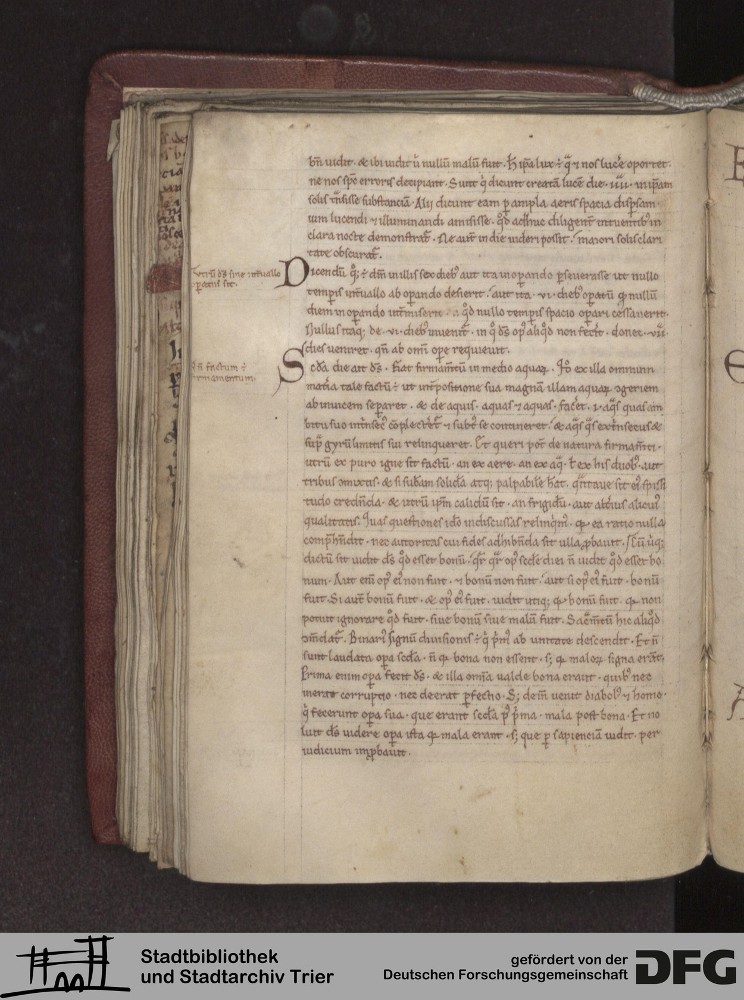 bn̄ uidit . & ibi uidit ū nullū malū fuit . H̄ ip̄a lux ē q̄ & nos lucē oportet .
ne nos spē erroris decipiant . Sunt q̇ dicunt creatā lucē die . iiii . in ip̄am
solis transisse substanciā . Alij dicunt eam p̱ ampla aeris spacia dispsam .
uim lucendi & illuminandi amisisse . qd̄ adhuc diligenť intuentib; in
clara nocte demonstrať . Ne aut̄ in die uideri possit . maiori solis clari
tate obscurať .
utrū ds̄ sine int̄uallo
opatus sit .
Dicendū q;
tempis int̄uallo ab opando desierit . aut ita . vi . dieb; opatū qd̄ nullū
diem in opando int̄miserit . ut qd̄ nullo tempis spacio opari cessauerit .
Nullus itaq; de . vi . dieb; inueniť . in q̇ ds̄ op; aliqd̄ non fecit . donec . vii .
dies ueniret . qn̄ ab om̄i ope requieuit .
factum ē
firmamentum .
Scd̄a die ait ds̄ . Fiat firmam̄tū in medio aquaꝝ . Iḡ ex illa omnium
mat̄ia tale factū ē ut int̄positione sua magnā illam aquaꝝ ɔgeriem
abinuicem separet . & de aquis . aquas & aquas . facet . & aq̄s quas am
bitu suo int̄nsec; ɔplectet̄ & subt; se contineret . & aq̄s q̄s extrinsecus &
sup̱ gyrū limitis sui relinqueret . Et queri pot̄ de natura firmam̄ti .
utrū ex puro igne sit factū . an ex aere . an ex aq̄ . ł ex his duob; . aut
tribus ɔmixtis . & si
tudo credēnda . & utrū ip̄m calidū sit . an frigidū . aut alt̄ius alicuius
qualitatis . Quas questiones ideo indiscussas relinqm̄ . quia ea ratio nulla
comp̱hendit . nec auctoritas cui fides adhib̄nda sit ulla ꝓbauit . Cū ūq;
dictū sit uidit ds̄ qd̄ esset bonū . quare op; scd̄e diei n̄ uidit qd̄ esset bo
num . Aut eni op; ei n̄ fuit . & bonū non fuit . aut si op; ei fuit . bonū
fuit . Si aut̄ bonū fuit . & op; ei fuit . uidit utiq; quia bonū fuit . quia non
potuit ignorare qd̄ fuit . siue bonū siue malū fuit . Sac̄m̄tū hic aliqd̄
ɔm̄dať . Binari; signū diuisionis ē q̇ pm; ab unitate descendit . Et n̄
sunt laudata opa scd̄a . n̄ quia bona non essent . s; quia maloꝝ signa erant .
Prima enim opa fecit ds̄ . & illa om̄ia ualde bona erant . quib; nec
inerat corruptio . nec deerat ꝑfectio . S; dem̄ uenit diabol; & homo .
q̇ fecerunt opa sua . que erant scd̄a p; pma . mala post bona . Et no
luit ds̄ uidere opa ista quia mala erant . s; que p̱ sapienciā uidit . per
iudicium imp̱bauit .
Stadtbibliothek
und Stadtarchiv Trier
gefördert von der
Deutschen Forschungsgemeinschaft
DFG